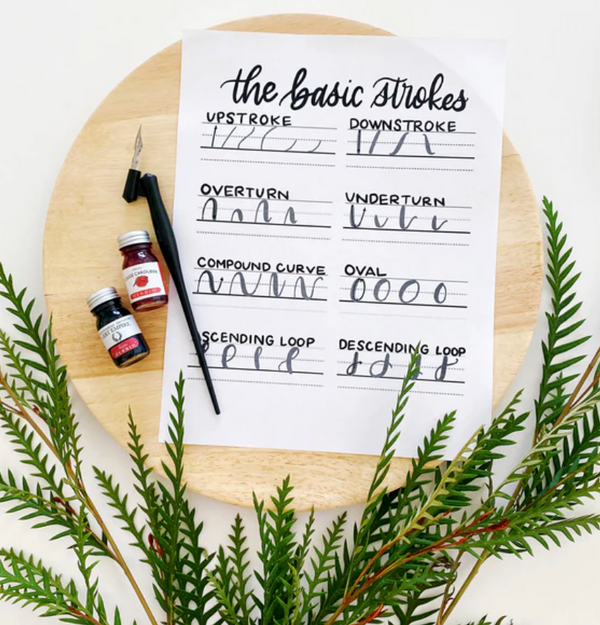 the basic strokes
UPSTROKE DOWNSTROKE
OVERTURN UNDERTURN
COMPOUND CURVE OVAL
SCENDING LOOP DESCENDING LOOP
HERBIN
HERBIN